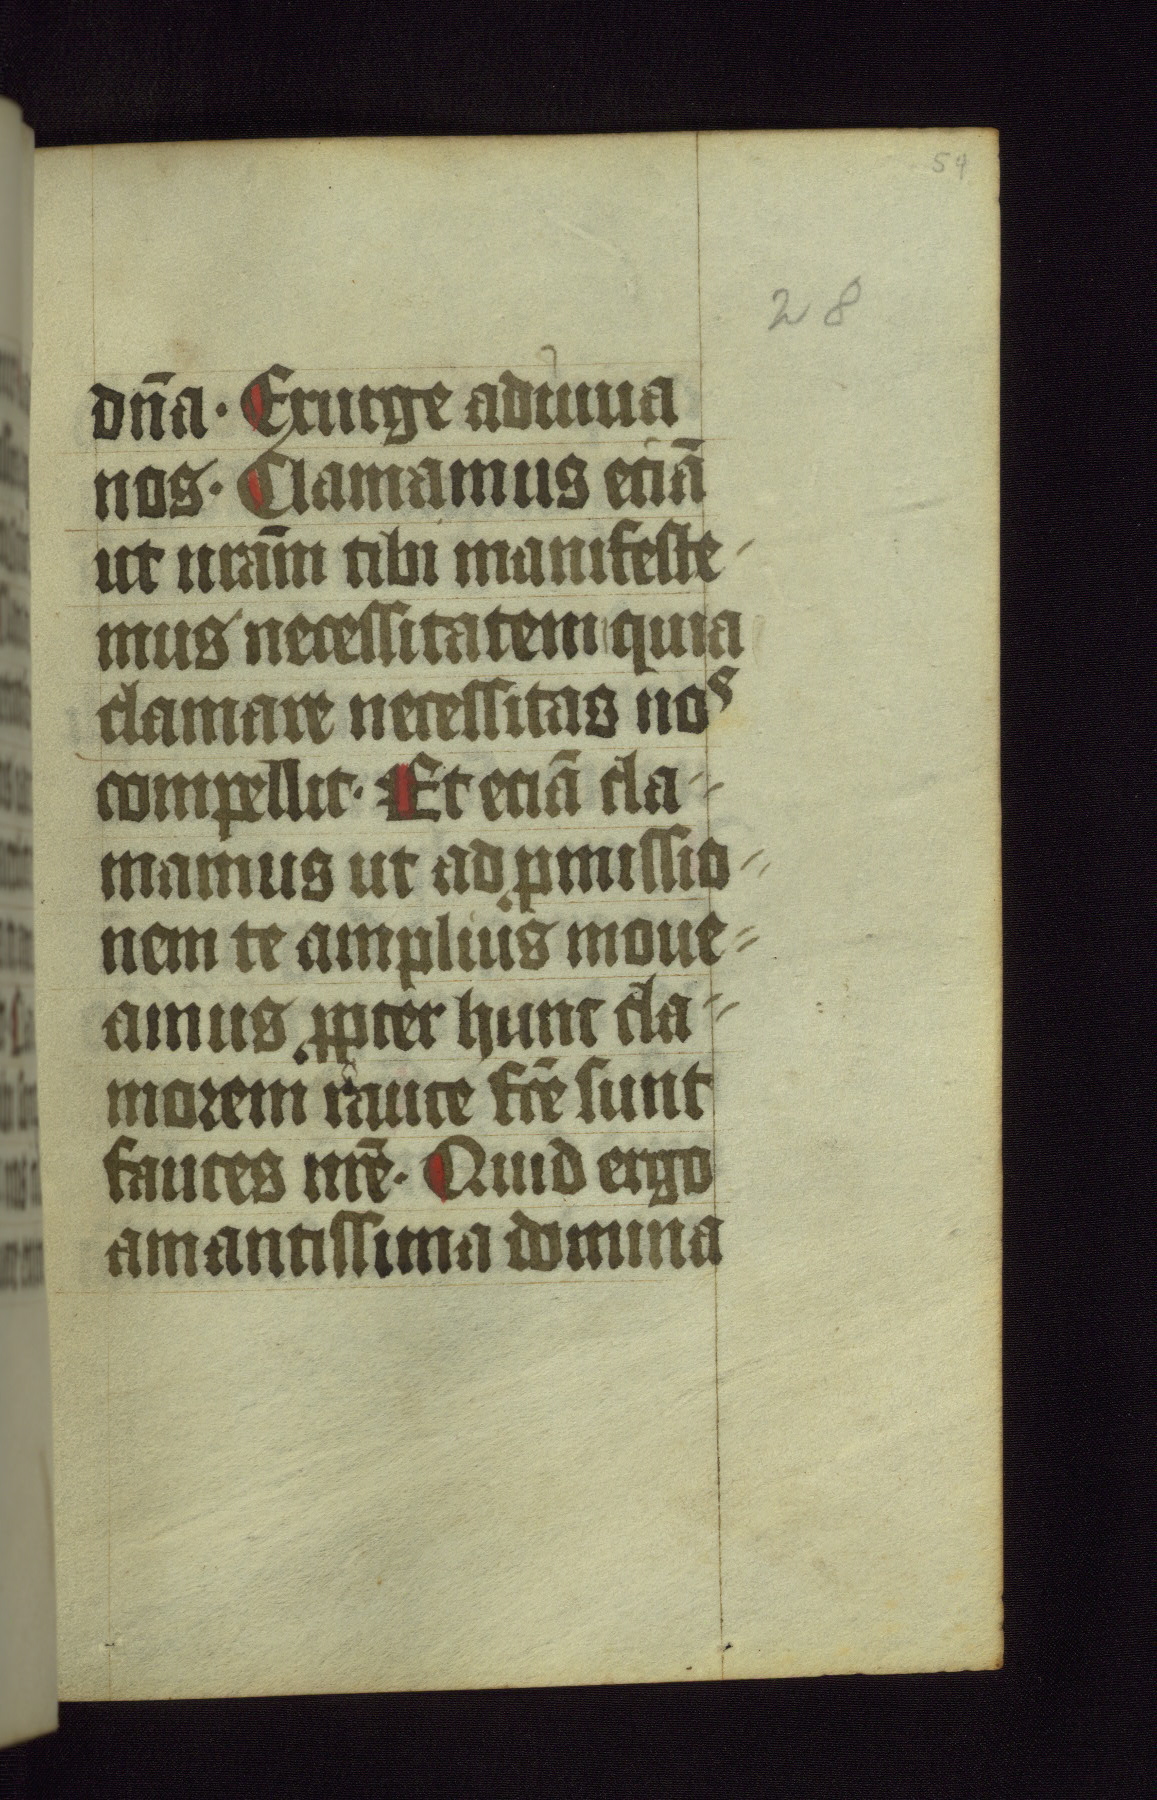 54
28
dn̄a · Exurge adiuua
nos · Clamamus eciā
ut nr̄am tibi manifeste-
mus necessitatem quia
clamare necessitas nos
compellit · Et eciā cla=
mamus ut ad pmissio=
nem te amplius moue=
amus ppter hunc cla=
morem rauce fc̄e sunt
fauces nr̄e · Quid ergo
amantissima domina